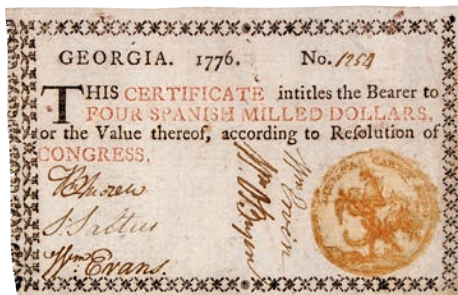 GEORGIA. 1776. No. 1254
THIS CERTIFICATE intitles the Bearer to
FOUR SPANISH MILLED DOLLARS,
or the Value thereof, according to Resolution of
CONGRESS.
Wm Evans.
Wm O'Bryen